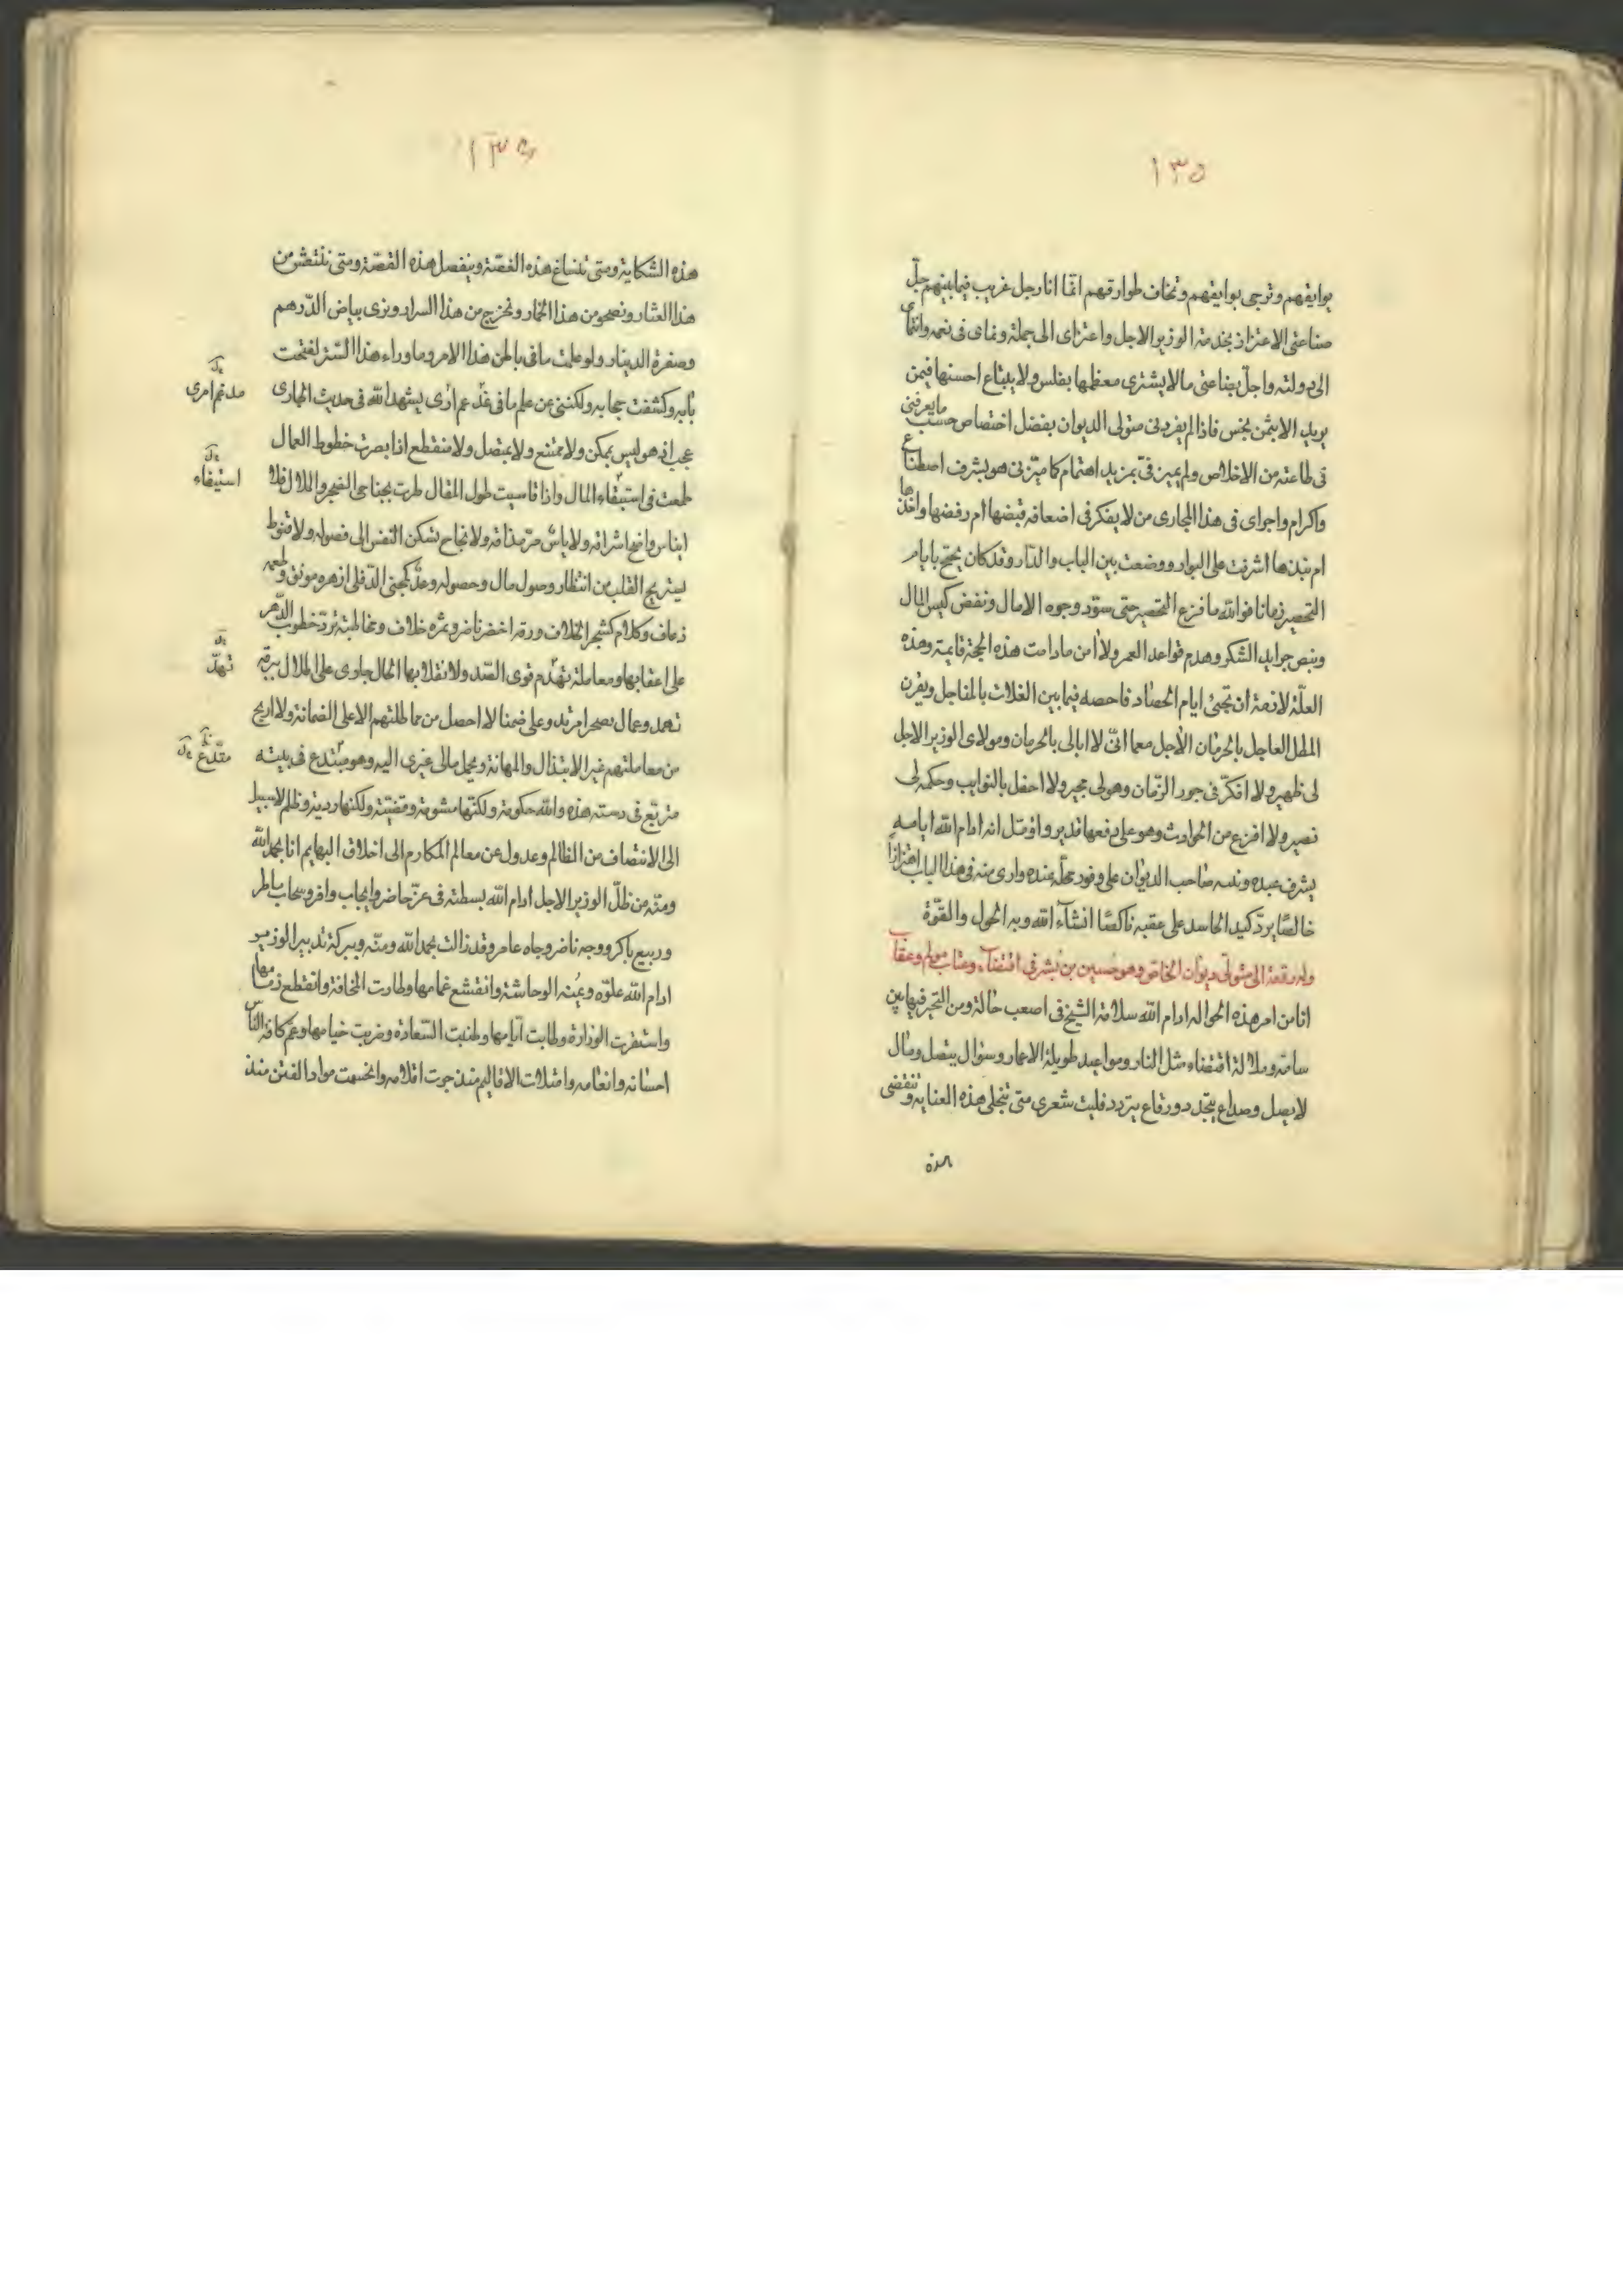 ١٣٥
بوايقهم وترجى بوايقهم وتخاف طوارقهم انما انا رجل غريب فيما بينهم جلّ
صناعتى الاعتزاز بخدمة الوزير الاجل واعتزاى الى جملة ونماى فى نعمه وانتماى
الى دولته واجلّ بضاعتى مالا يشترى معظمها بفلس ولا يبتاع احسنها فيمن
يريد الا بثمن بخس فاذا لم يفردنى متولى الديوان بفضل اختصاص حسب ما يعرفنى
فى طاعته من الاخلاص ولم يميزنى بمزيد اهتمام كا ميّزنى هو بشرف اصطناع
واكرام واجراى فى هذا المجارى من لا يفكر فى اضعافه قبضها ام رفضها واخذها
ام نبذها اشرفت على البوار ووضعت بين الباب والدار وقد كان يحتج بايام
التحصير زمانا فوالله ما فزع التحصير حتى سوّد وجوه الامال ونفض كيس المال
وبنص جرايد الشكر وهدم قواعد العمر ولا أمن مادامت هذه الحجة قايمة وهذه
العلّة لازمة ان تجئ ايام الحصاد فاحصه فيما بين الغلات بالمناجل ويقرن
المطل العاجل بالحرمان الآجل معما انّى لا ابالى بالحرمان ومولاى الوزير الاجل
لى ظهير ولا افكرّ فى جور الزّمان وهو لى مجير ولا احفل بالنوايب وحكمه لى
نصير ولا افزع من الحوادث وهو على دفعها قدير واؤمّل انه ادام الله ايامه
يشرف عبده صاحب الديوان على وفور محلّه عنده وارى منه فى هذا الباب اهتزازا
خالصًا يردّ كيد الحاسد على عقبه ناكصًا انشآء الله وبه الحول والقوّة
وله رقعة الى متولّى ديوان الخاص وهو حسين بن بشر فى اقتضآء وعتاب مولم وعقاب
انا من امر هذه الحوالة ادام الله سلامة الشيخ فى اصعب حالة ومن التحير فيها بين
سامة وملالة اقتضاء مثل النار ومواعيد طويلة الاعمار وسؤال يتصل ومال
لا يصل وصداع يتجّدد ورقاع يتردد فليت شعرى متى تنجلى هذه العناية وتنقضى
هذه
١٣٦
هذه الشكاية ومتى تنساغ هذه الغصّة وينفصل هذه القصّة ومتى ننتعش من
هذا العثار ونصحو من هذا الخمار ونخرج من هذا السرار ونرى بياض الدّرهم
وصفرة الدينار ولو علمت ما فى باطن هذا الامر وما وراء هذا السّتر لفتحت
بابه وكشفت حجابه ولكننى عن علم ما فى غدٍ عم أرى يشهد الله فى حديث المجارى
عجبا فهو ليس بمكن ولا ممتنع ولا بمتصل ولا منقطع اذا بصرت خطوط العمال
طمعت فى استبقاء المال واذا قاسيت طول المقال طرت بجناحى الضجر والملال فلا
ايناس واضح اشراقه ولا ياس مرّ مذاقه ولا نجاح تسكن النفس الى فصوله ولا قنوط
يستريح القلب من انتظار وصول مال وحصوله وعدٌ كجنى الدّفلى ازهر مونق وطعمه
زعاف وكلام كشجر الخلاف ورقه اخضر ناضر وثمره خلاف ومخاطبة تردّ خطوب الدّهر
على اعقابها ومعاملة تهدّم قوى السّد ولا نقلابها الحال جاوى على الملال ببرقه
تعمد وعمال بصحرامرتد وعلى ضمنا لا احصل من مماطلتهم الا على الضمانة ولا اربح
من معاملتهم غير الابتذال والمهانة ومجمل مالى غيرى اليه وهو مبتدع فى بيته
متربّع فى دسته هذه والله حكومة ولكنّها مشومة وقضيّة ولكنها رديّة وظلم لا سبيل
الى الانتصاف من الظالم وعدول عن معالم المكارم الى اخلاق البهايم انا بحمد الله
ومنّه من ظلّ الوزير الاجل ادام الله بسطته فى عزّ حاضر وايجاب وافر وسحاب ماطر
وربيع باكر ووجه ناضر وجاه عامر وقد زالت بحمد الله ومنّه وببركة تدبير الوزير
ادام الله علوّه الوحاشة وانقشع غمامها وطارت المخافة وانقطع زمامها
واستقرت الوزارة وطابت ايّامها وطنبت السّعادة وضربت خيامها وعمّ كافة النّاس
احسانه وانعامه وامتلات الاقاليم منذ جرت اقلامه وانحسمت مواد الفتن منذ
مدغم امرى
استيفاء
تهدّ